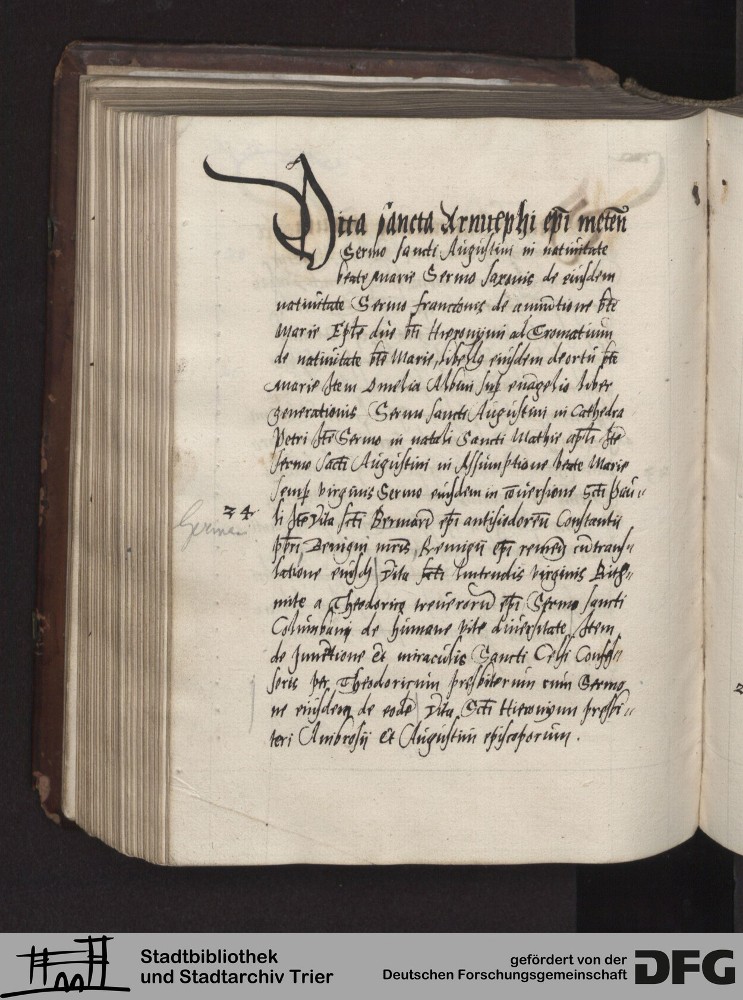 Vita sancta Arnulphi epi̅ meten̅
Sermo sancti Augustini in natiuitate
beate marie Sermo saxonis de eiusdem
natiuitate Sermo franconis de annu̅tione bt̅e
Marie Ep̅le due bt̅i Hieronymi ad Cromatium
de natiuitate bt̅e Marie, libellꝰ eiusdem de ortu bt̅e
Marie Item Omelia Albini sup euãgelio liber
generationis Sermo sancti Augustini in Cathedra
Petri Ite̅ Sermo in natali Sancti Mathie apl̅i Ite̅
sermo sa̅cti Augustini in Assumptione beate Marie
semp virginis Sermo eiusdem in co̅uersione Sc̅ti Pau-
24
li Ite̅ vita sc̅ti Germani epi̅ antisiodoren̅ Constantii
pb̅ri, Benigni m̅ris, Remigii epi̅ remen̅ cu̅ trans-
latione eiusd̅ Vita sc̅ti lutrudis virginis Rith-
mite a Theodorico treuerorũ epi̅ Sermo sancti
Columbani de humane vite diuersitate, Item
de Inue̅tione et miraculis Sancti Celsi Confes-
soris per Theodoricum presbiterum cum Sermo
ne eiusdem de eode̅ Vita Sc̅ti Hieronymi presbi-
teri Ambrosii et Augustini episcoporum.
Stadtbibliothek
und Stadtarchiv Trier
gefördert von der
Deutschen Forschungsgemeinschaft
DFG